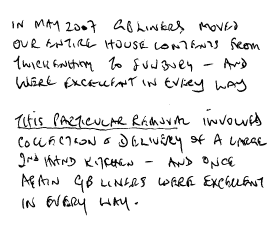 IN MAY 2007 GB LINERS MOVED
OUR ENTIRE HOUSE CONTENTS FROM
TWICKENHAM TO SUNBURY - AND
WERE EXCELLENT IN EVERY WAY
THIS PARTICULAR REMOVAL INVOLVED
COLLECTION & DELIVERY OF A LARGE
2ND HAND KITCHEN - AND ONCE
AGAIN GB LINERS WERE EXCELLENT
IN EVERY WAY.